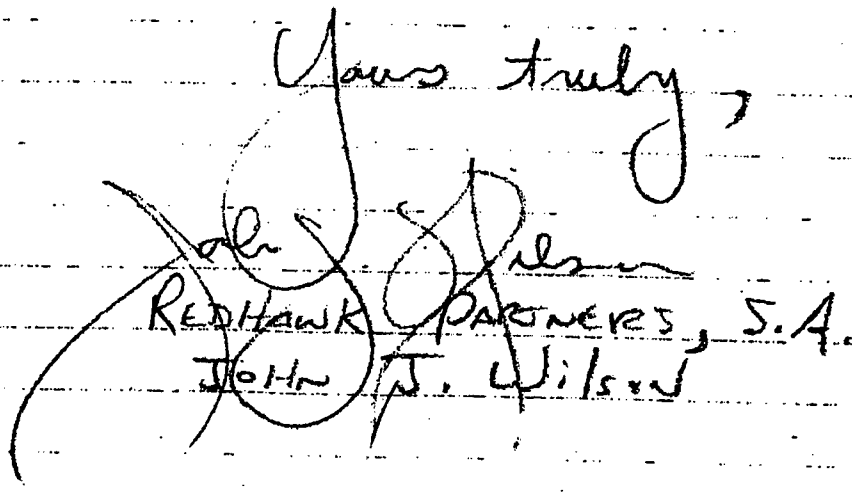 Yours truly,
John J Wilson
REDHAWK PARTNERS, S.A.
JOHN J. Wilson